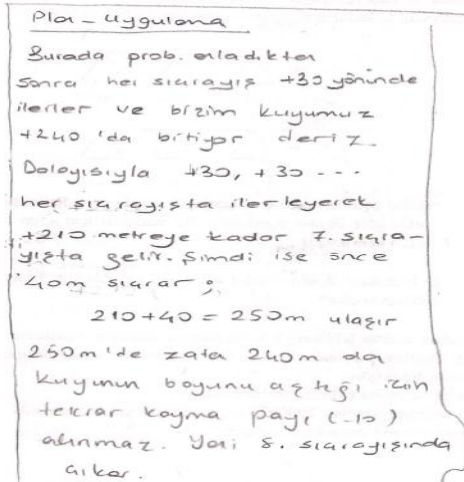 Plan - Uygulama
Burada prob. anladıktan
sonra her sıçrayış +30 yönünde
ilerler ve bizim kuyumuz
+240 'da bitiyor deriz.
Dolayısıyla +30, +30 ---
her sıçrayışta ilerleyerek
+210 metreye kadar 7. sıçra-
yışta gelir. Şimdi ise önce
40m sıçrar ;
210+40 = 250m ulaşır
250m'de zaten 240m da
kuyunun boyunu aştığı için
tekrar kayma payı (-10)
alınmaz. Yani 8. sıçrayışında
çıkar.